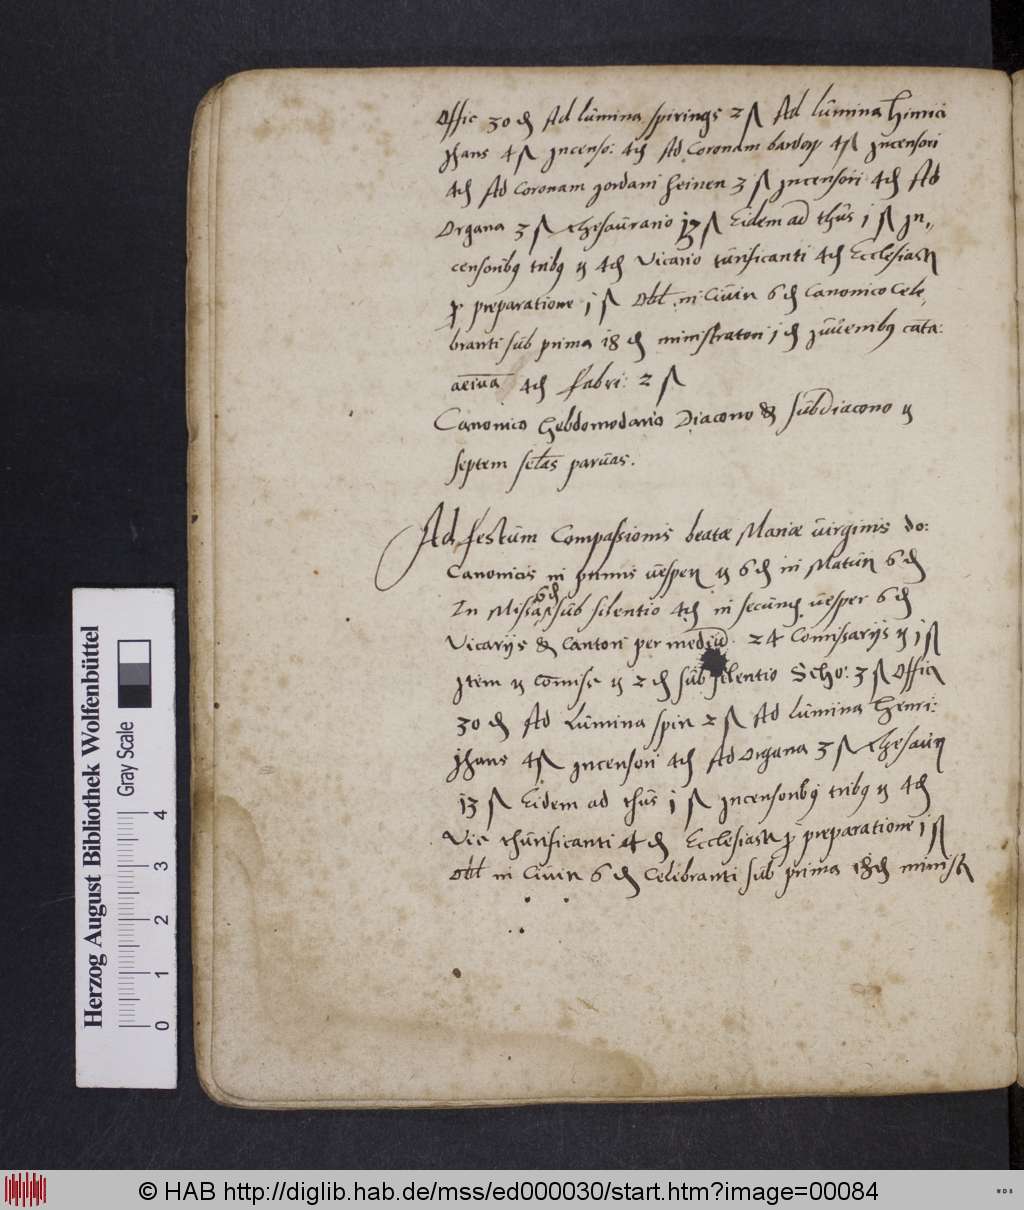 Offic 30 ₰ Ad lumina spirings 2 ß Ad lumina Hinrici
Jhans 4 ß Incenso: 4 ₰ Ad Coronam bardor 4 ß Incensori
4 ₰ Ad Coronam Jordani Heinen 3 ß Incensori 4 ₰ Ad
Organa 3 ß Thesaurario 13 ß Eidem ad thus 1 ß In„
censoribus tribus 4 ₰ Vicario turificanti 4 ₰ Ecclesiast
pro preparatione 1 ß Obl in Civir 6 ₰ Canonico Cele
branti sub prima 18 ₰ ministratori 1 ₰ Juvenibus canta:
4 ₰ fabri: 2 ß
Canonico Hebdomodario Diacono & subdiacono
septem parvas.
Ad festum Compassionis beatæ Mariæ virginis do:
Canonicis in primis vesper 6 ₰ in Matur 6 ₰
In Missa 6 ₰ sub silentio 4 ₰ in secund vesper 6 ₰
Vicarijs & Cantori per medium 24 Comissarijs 1 ß
Item comiss 2 ₰ sub silentio Scho: 3 ß Offic
30 ₰ Ad Lumina spir 2 ß Ad lumina Henri:
Jhans 4 ß Incensori 4 ₰ Ad Organa 3 ß Thesaur
13 ß Eidem ad thus 1 ß Incensoribus tribus 4 ₰
Vic thurificanti 4 ₰ Ecclesiast pro preparatione 1 ß
Obl in Civir 6 ₰ Celebranti sub prima 18 ₰ minist
Herzog August Bibliothek Wolfenbüttel
Gray Scale
0 1 2 3 4
© HAB http://diglib.hab.de/mss/ed000030/start.htm?image=00084